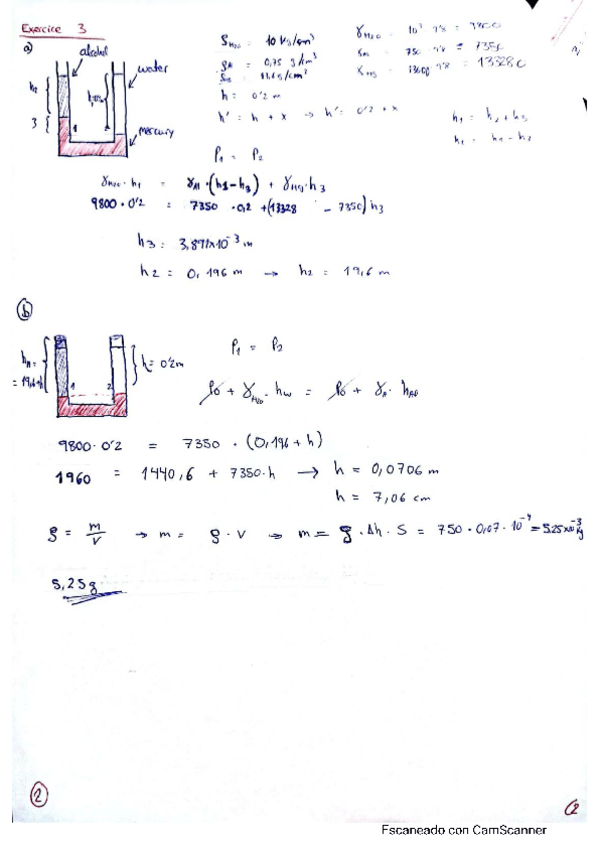 Exercice 3
a)
alcohol
water
mercury
h2
3
1
ρH2O = 10 kg/cm³
= 0,75 g/cm³
h = 0'2 m
h' = h + x → h' = 0'2 + x
γH2O = 10³ 9'8 = 9800
750 9'8 = 7350
13600 9'8 = 13328
P1 = P2
γH2O · h1 = γA · (h1-h3) + γHg · h3
9800 · 0'2 = 7350 · 0,2 + (13328 - 7350) h3
h3 = 3,891×10⁻³ m
h2 = 0,196 m → h2 = 19,6 m
b
1
2
h = 0'2 m
P1 = P2
P0 + γH2O · hw = P0 + γA ·
9800 · 0'2 = 7350 · (0,196 + h)
1960 = 1440,6 + 7350·h → h = 0,0706 m
h = 7,06 cm
ρ = m/V → m = ρ · V → m = ρ · Δh · S = 750 · 0,07 · 10⁻⁴ = 5,25×10⁻³ kg
5,25 g
2
Escaneado con CamScanner